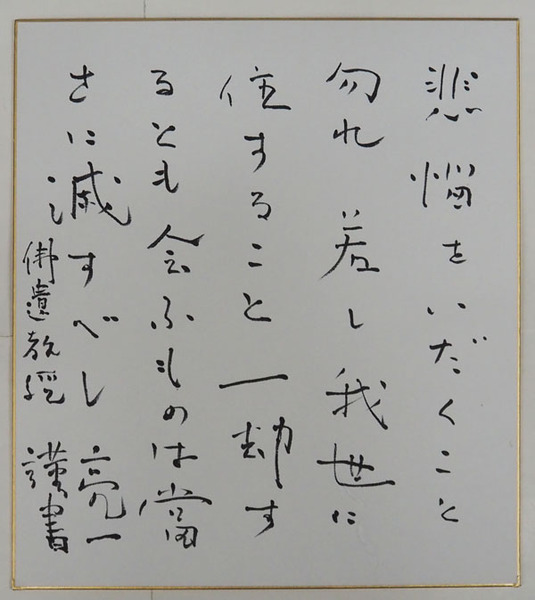 悲悩をいだくこと
勿れ 若し我世に
住すること一劫す
るとも会ふものは當
さに滅すべし
佛遺教經
亮一
謹書